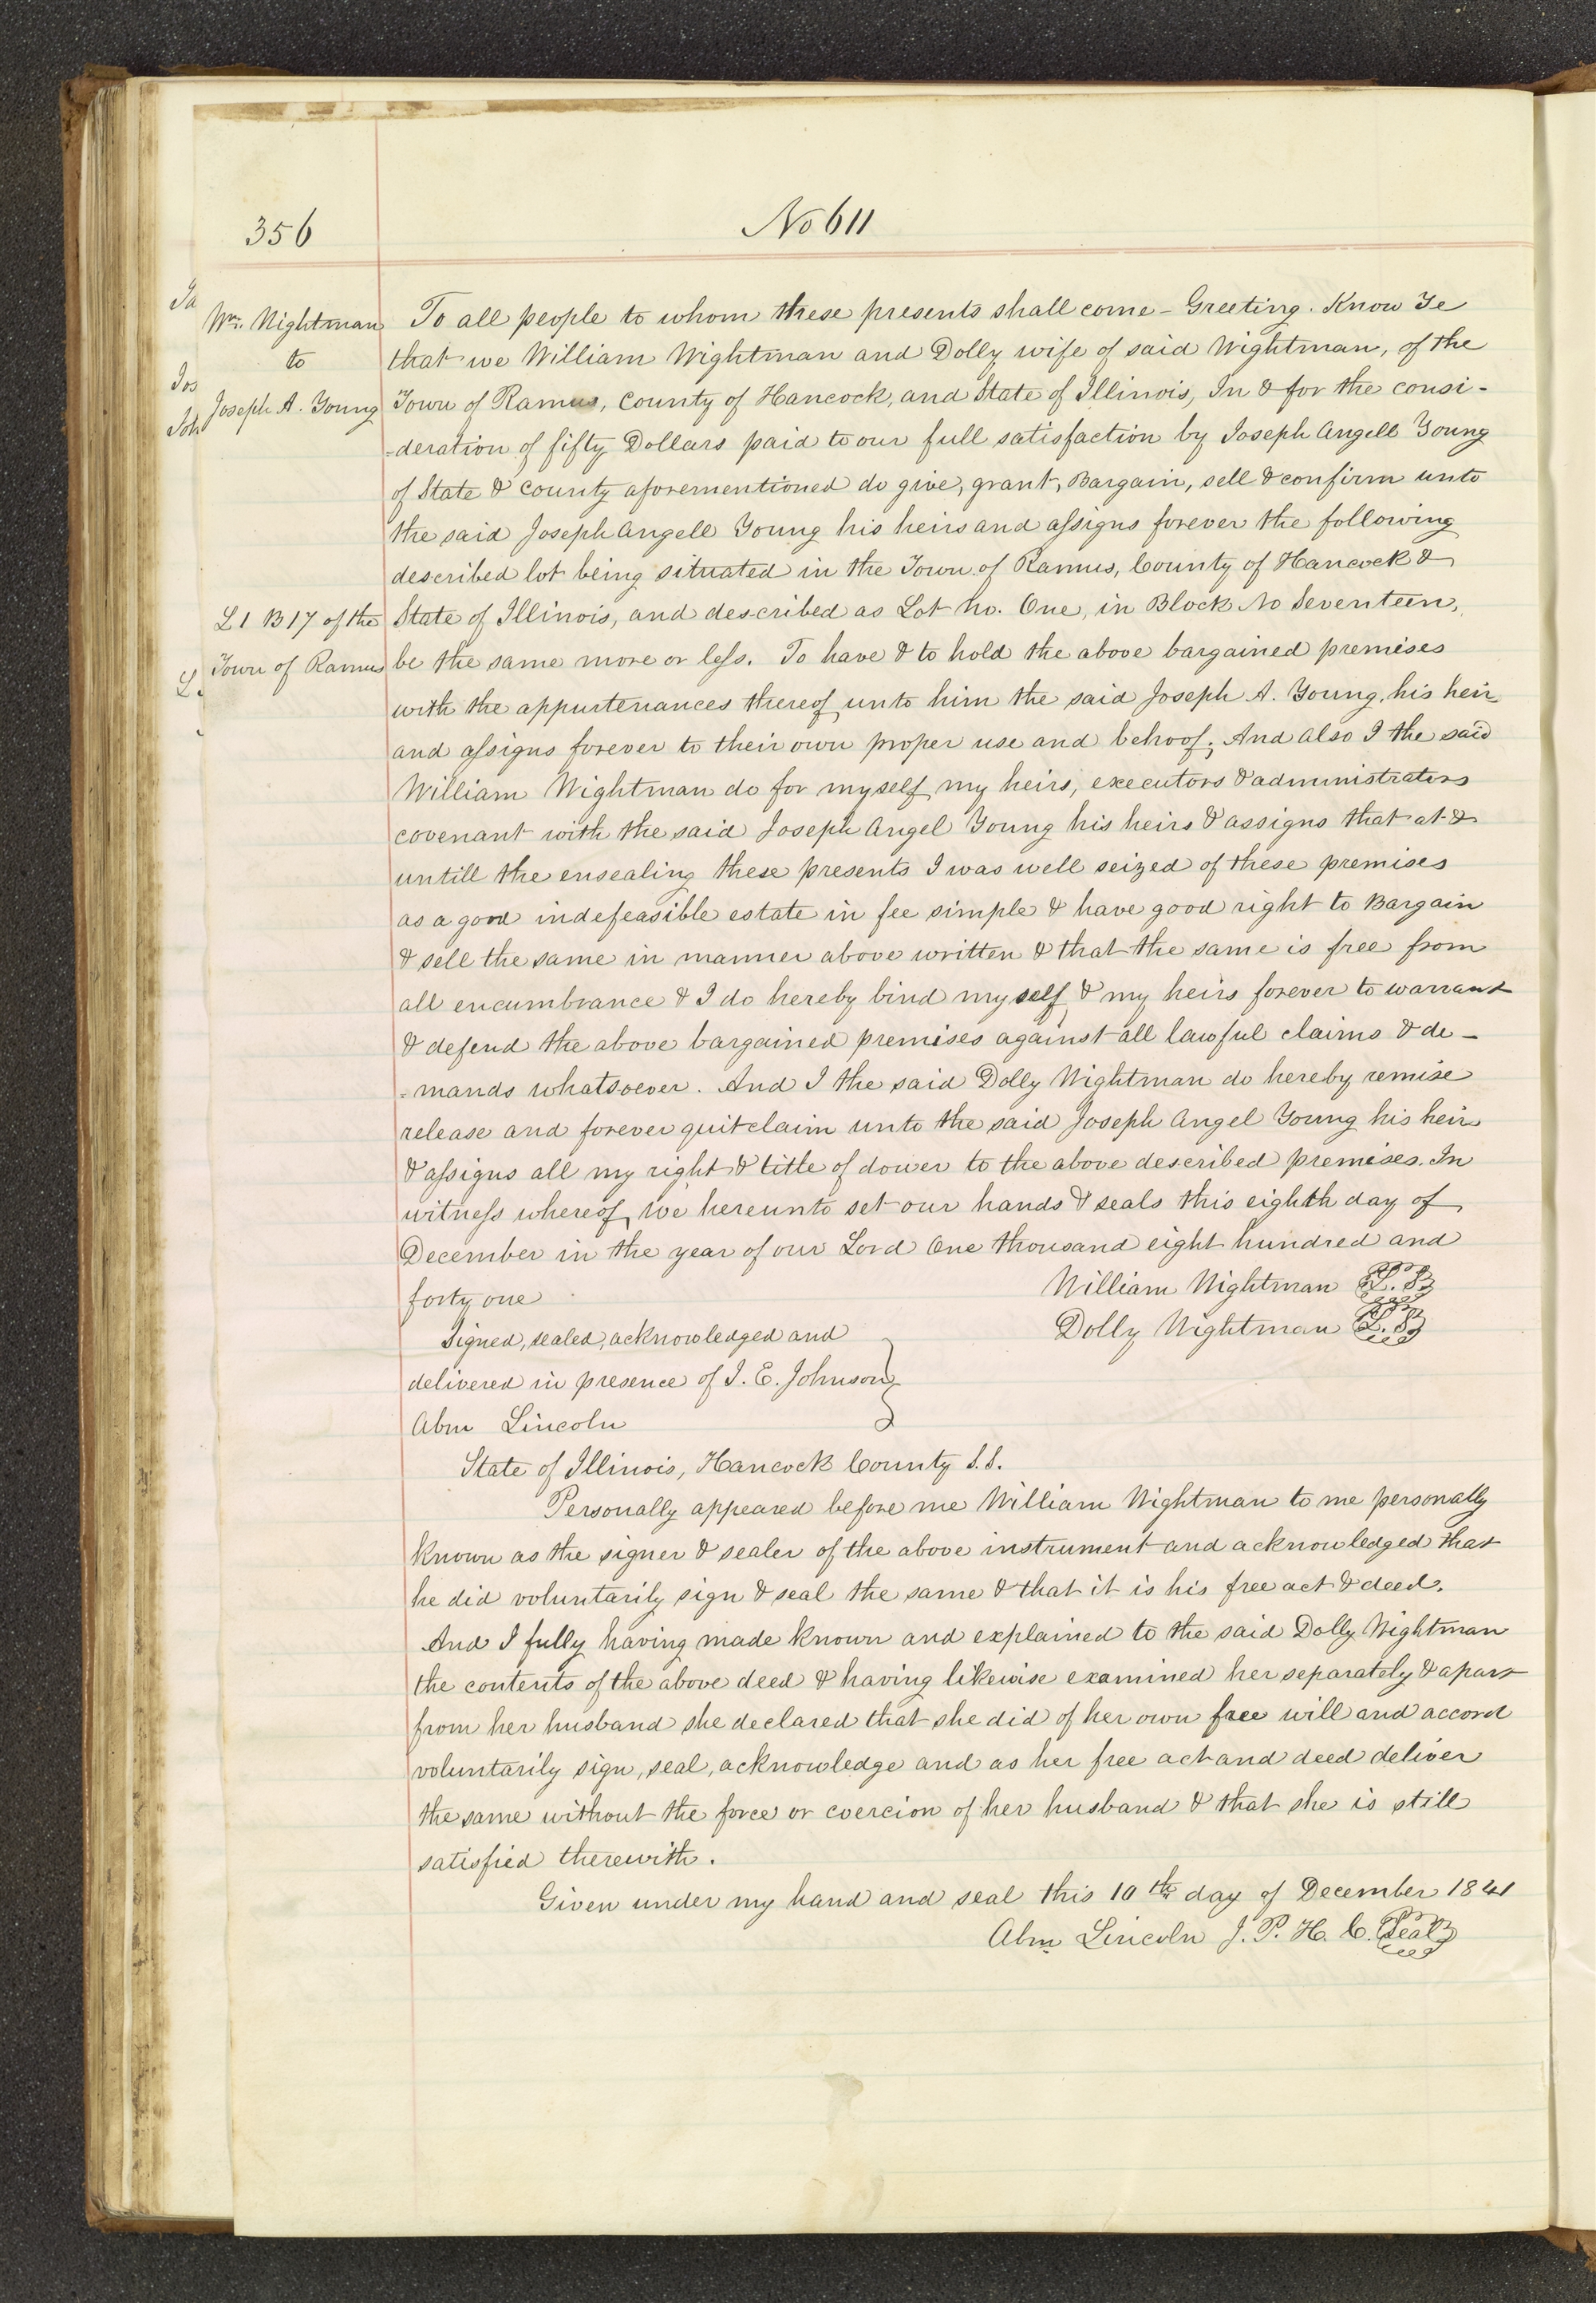 356
No 611
Wm. Wightman
to
Joseph A. Young
To all people to whom these presents shall come – Greeting. Know Ye
that we William Wightman and Dolly wife of said Wightman, of the
Town of Ramus, County of Hancock, and State of Illinois, In & for the consi-
-deration of fifty Dollars paid to our full satisfaction by Joseph Angell Young
of State & County aforementioned do give, grant, Bargain, sell & confirm unto
the said Joseph Angell Young his heirs and assigns forever the following
described lot being situated in the Town of Ramus, County of Hancock &
L 1 B 17 of the
Town of Ramus
State of Illinois, and described as Lot No. One, in Block No Seventeen,
be the same more or less. To have & to hold the above bargained premises
with the appurtenances thereof, unto him the said Joseph A. Young, his heirs
and assigns forever to their own proper use and behoof; And also I the said
William Wightman do for myself, my heirs, executors & administrators
covenant with the said Joseph Angel Young his heirs & assigns that at &
untill the ensealing these presents I was well seized of these premises
as a good indefeasible estate in fee simple & have good right to Bargain
& sell the same in manner above written & that the same is free from
all encumbrance & I do hereby bind myself, & my heirs forever to warrant
& defend the above bargained premises against all lawful claims & de-
-mands whatsoever. And I the said Dolly Wightman do hereby remise
release and forever quitclaim unto the said Joseph Angel Young his heirs
& assigns all my right & title of dower to the above described premises. In
witness whereof, we hereunto set our hands & seals this eighth day of
December in the year of our Lord One thousand eight hundred and
forty one
William Wightman L. S.
Dolly Wightman L. S.
Signed, sealed, acknowledged and
delivered in presence of J. E. Johnson
Abm Lincoln
State of Illinois, Hancock County S.S.
Personally appeared before me William Wightman to me personally
known as the signer & sealer of the above instrument and acknowledged that
he did voluntarily sign & seal the same & that it is his free act & deed.
And I fully having made known and explained to the said Dolly Wightman
the contents of the above deed & having likewise examined her separately & apart
from her husband she declared that she did of her own free will and accord
voluntarily sign, seal, acknowledge and as her free act and deed deliver
the same without the force or coercion of her husband & that she is still
satisfied therewith.
Given under my hand and seal this 10th day of December 1841
Abm Lincoln J. P. H. C. Seal